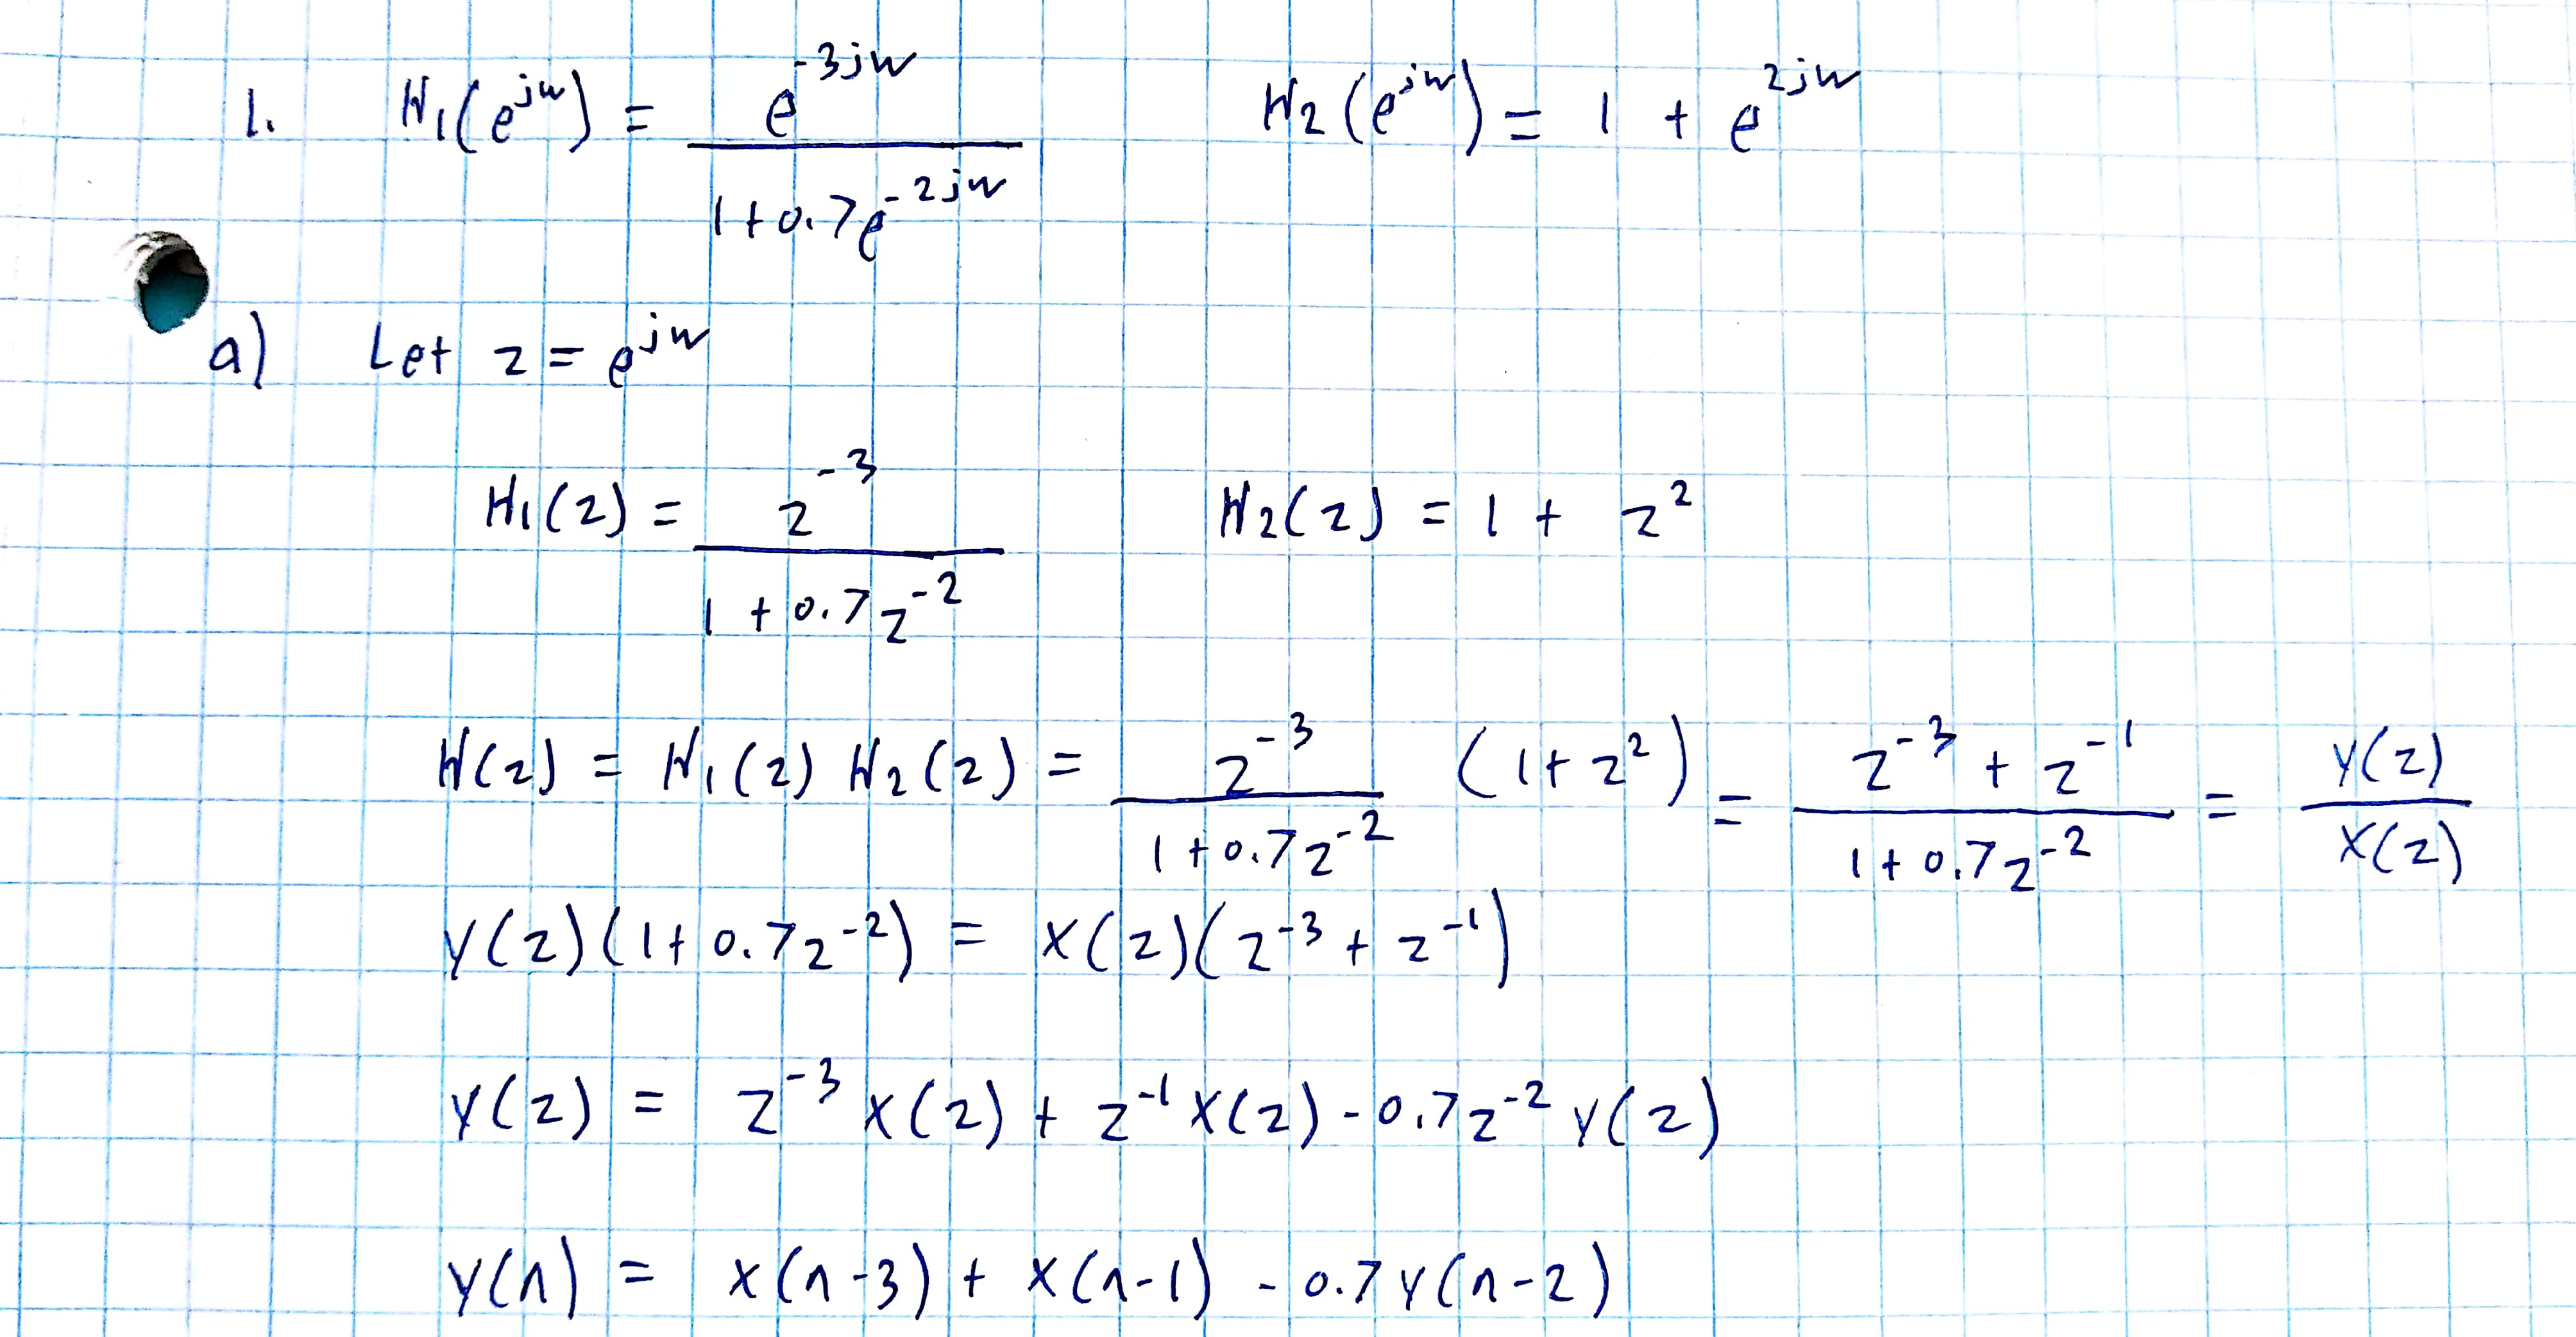 1. H₁(e^{jw}) = e^{-3jw} / (1+0.7e^{-2jw})    H₂(e^{jw}) = 1 + e^{2jw}
a) Let z = e^{jw}
H₁(z) = z^{-3} / (1 + 0.7z^{-2})    H₂(z) = 1 + z²
H(z) = H₁(z) H₂(z) = z^{-3} / (1+0.7z^{-2}) (1+z²) = (z^{-3} + z^{-1}) / (1+0.7z^{-2}) = Y(z) / X(z)
Y(z)(1+0.7z^{-2}) = X(z)(z^{-3} + z^{-1})
Y(z) = z^{-3} X(z) + z^{-1} X(z) - 0.7z^{-2} Y(z)
y(n) = x(n-3) + x(n-1) - 0.7y(n-2)